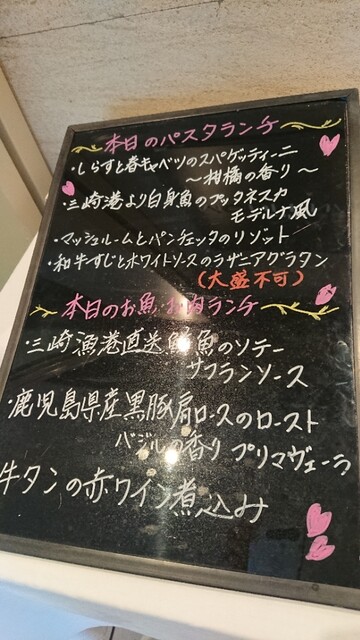 本日のパスタランチ
・しらすと春キャベツのスパゲッティーニ
〜柑橘の香り〜
・三崎港より白身魚のプッタネスカ
モデルナ風
・マッシュルームとパンチェッタのリゾット
・和牛すじとホワイトソースのラザニアグラタン
(大盛不可)
本日のお魚・お肉ランチ
・三崎漁港直送 魚のソテー
サフランソース
・鹿児島県産黒豚肩ロースのロースト
バジルの香り プリマヴェーラ
牛タンの赤ワイン煮込み